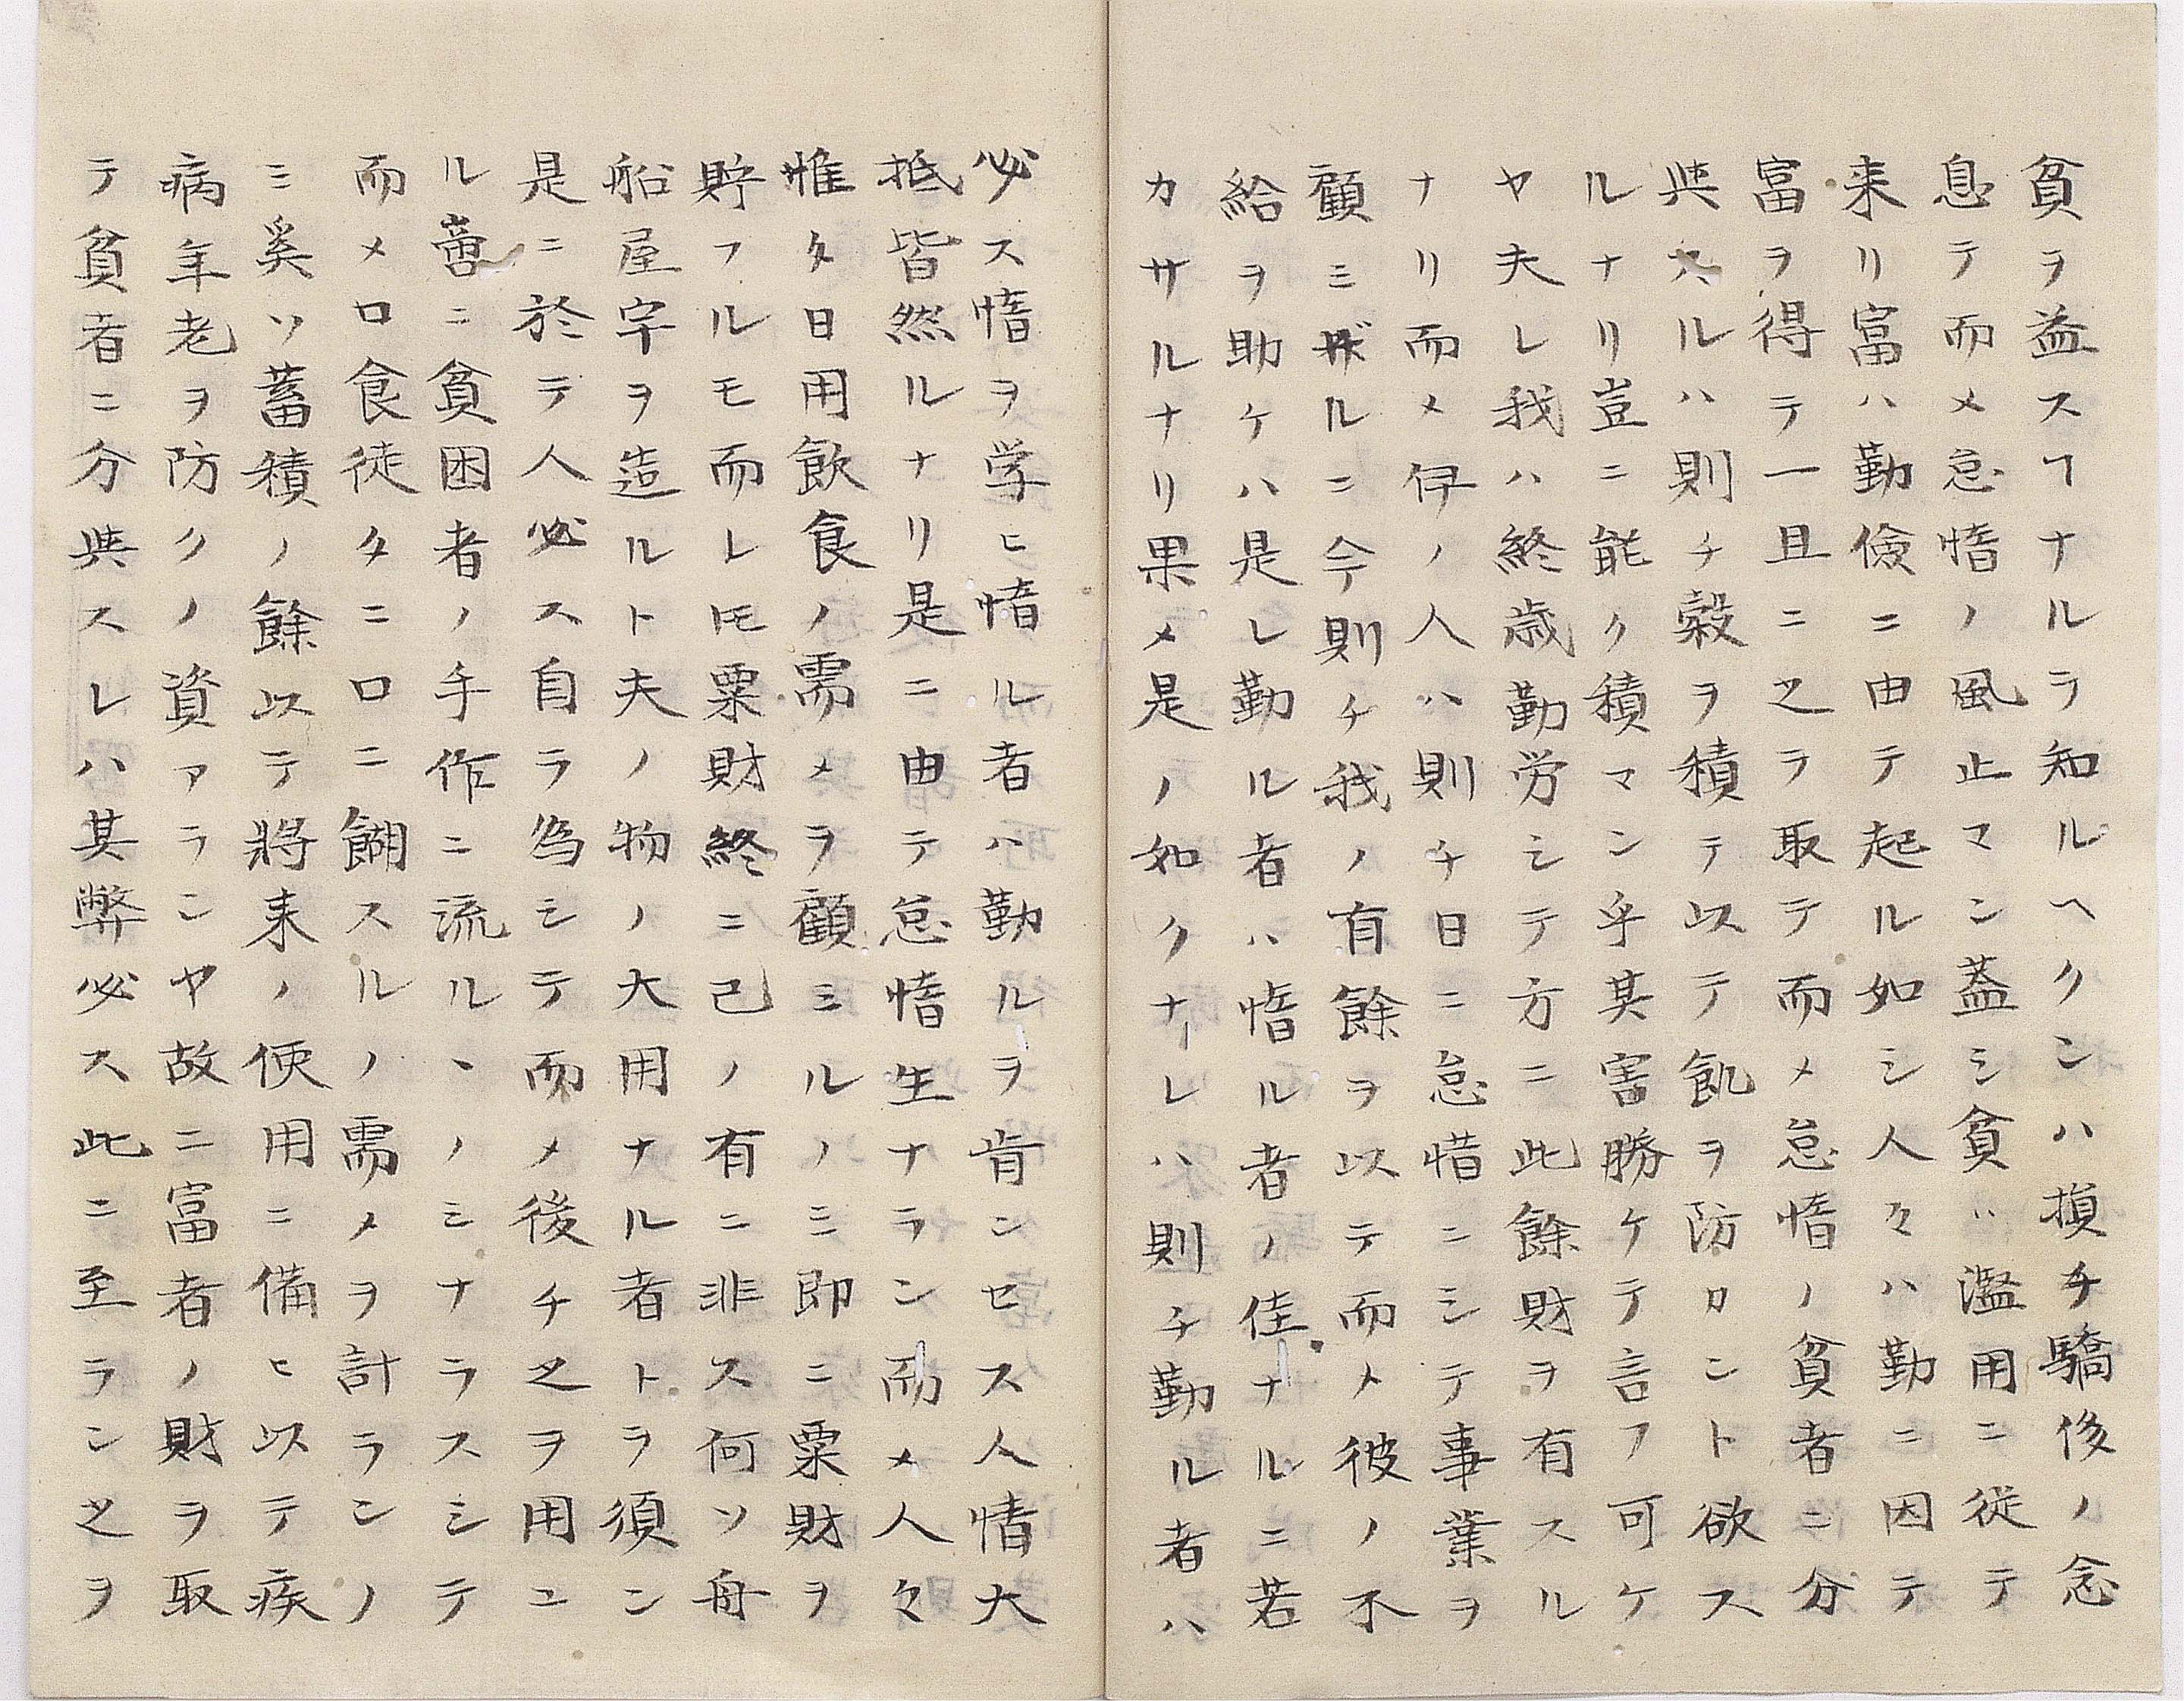 貧ヲ益スヿナルラ知ルヘクンハ損チ驕侈ノ念
息テ而メ怠惰ノ風止マン蓋シ貧ハ濫用ニ従テ
来リ富ハ勤儉ニ由テ起ル如シ人々ハ勤ニ因テ
富ヲ得テ一旦ニ之ラ取テ而メ怠惰ノ貧者ニ分
與スルハ則チ穀ヲ積テ以テ飢ヲ防カント欲ス
ルナリ豈ニ能ク積マン乎其害勝ケテ言フ可ケ
ヤ夫レ我ハ終歳勤労シテ方ニ此餘財ヲ有スル
ナリ而メ伊ノ人ハ則チ日ニ怠惜ニシテ事業ヲ
顧ミザルニ今則チ我ノ有餘ヲ以テ而メ彼ノ不
給ヲ助ケハ是レ勤ル者ハ惰ル者ノ佳ナルニ若
カサルナリ果メ是ノ如クナレハ則チ勤ル者ハ
必ス惰ヲ学ヒ惰ル者ハ勤ルヲ肯ンセス人情大
抵皆然ルナリ是ニ由テ怠惰生ナラン而メ人々
惟タ日用飲食ノ需メヲ顧ミルノミ即ニ粟財ヲ
貯フルモ而レ𪜈粟財終ニ己ノ有ニ非ス何ソ舟
船屋宇ヲ造ルト夫ノ物ノ大用ナル者トラ須ン
是ニ於テ人必ス自ラ為シテ而メ後チ之ヲ用ユ
ル啻ニ貧困者ノ手作ニ流ルヽノミナラスシテ
而メロ食徒タニロニ餬スルノ需メヲ計ランノ
ミ奚ソ蓄積ノ餘以テ将来ノ便用ニ備ヒ以テ疾
病年老ヲ防クノ資アランヤ故ニ富者ノ財ヲ取
テ貧者ニ分與スレハ其弊必ス此ニ至ラン之ヲ